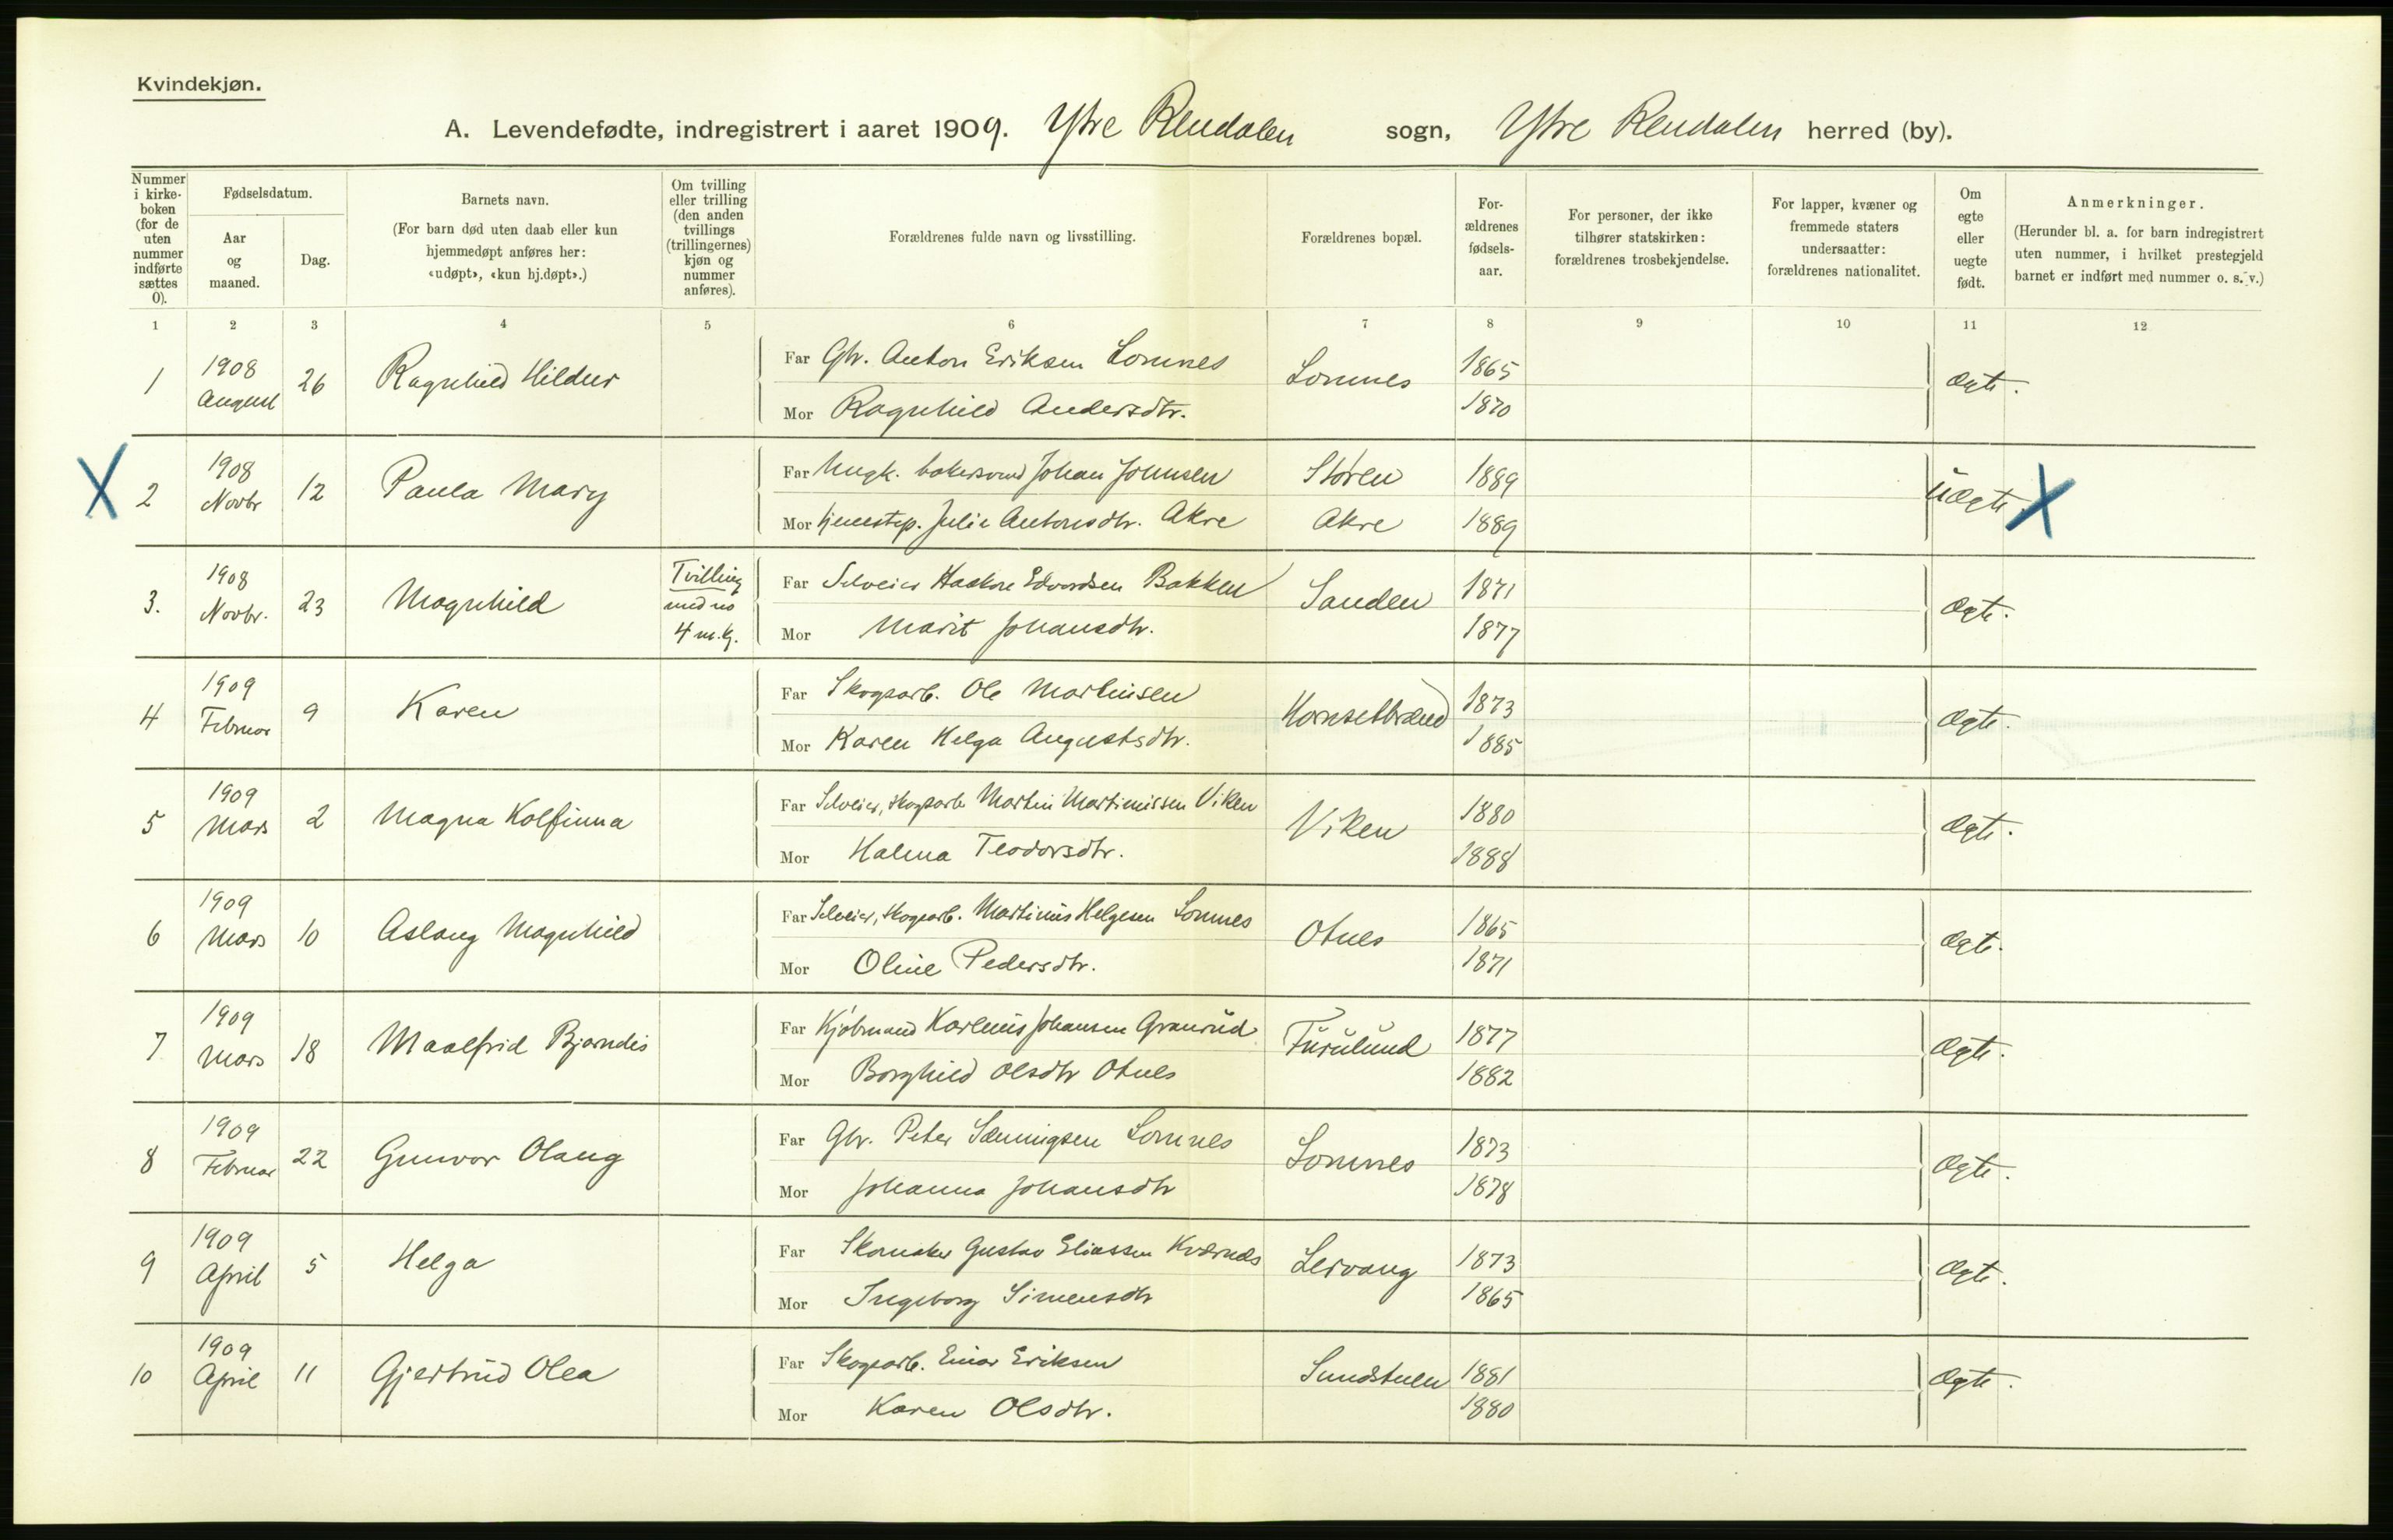 Kvindekjøn.
A. Levendefødte, indregistrert i aaret 1909. Ytre Rendalen sogn, Ytre Rendalen herred (by).
Nummer i kirke-boken (for de uten nummer indførte sættes 0).
Fødselsdatum.
Aar og maaned.
Dag.
Barnets navn.
(For barn død uten daab eller kun hjemmedøpt anføres her: «udøpt», «kun hj.døpt».)
Om tvilling eller trilling (den anden tvillings (trillingernes) kjøn og nummer anføres).
Forældrenes fulde navn og livsstilling.
Forældrenes bopæl.
For-ældrenes fødsels-aar.
For personer, der ikke tilhører statskirken: forældrenes trosbekjendelse.
For lapper, kvæner og fremmede staters undersaatter: forældrenes nationalitet.
Om egte eller uegte født.
Anmerkninger.
(Herunder bl. a. for barn indregistrert uten nummer, i hvilket prestegjeld barnet er indført med nummer o. s. v.)
1 2 3 4 5 6 7 8 9 10 11 12
1 1908 August 26 Ragnhild Hildur Far Gbr. Anton Eriksen Lomnes Lomnes 1865 ægte.
Mor Ragnhild Andersdtr. 1870
X 2 1908 Novbr 12 Paula Mary Far Ungk. bakersvend Johan Johnsen Støren 1889 uægte. X
Mor tjenestep. Julie Antonsdtr. Akre Akre 1889
3. 1908 Novbr. 23 Magnhild Tvilling med no 4 m.kj. Far Selveier Haakon Edvardsen Bakken Sanden 1871 ægte.
Mor Marit Johansdtr. 1877
4 1909 Februar 9 Karen Far Skogsarb. Ole Martinsen Hornsetbrænd 1873 ægte.
Mor Karen Helga Augustsdtr. 1885
5 1909 Mars 2 Magna Kolfinna Far Selveier, skogsarb Martin Martinissen Viken Viken 1880 ægte.
Mor Halma Teodorsdtr. 1888
6 1909 Mars 10 Aslaug Magnhild Far Selveier, skogsarb. Martinus Helgesen Lomnes Otnes 1865 ægte.
Mor Oline Pedersdtr. 1871
7 1909 Mars 18 Maalfrid Bjarndis Far Kjøbmand Karlenius Johansen Granrud Furulund 1877 ægte.
Mor Borghild Olsdtr Otnes 1882
8 1909 Februar 22 Gunvor Olaug Far Gbr. Peter Sæmingsen Lomnes Lomnes 1873 ægte.
Mor Johanna Johansdtr 1878
9 1909 April 5 Helga Far Skomaker Gustav Eliassen Kværnæs Lervang 1873 ægte.
Mor Ingeborg Simensdtr 1865
10 1909 April 11 Gjertrud Olea Far Skogsarb. Einar Eriksen Sundstuen 1881 ægte.
Mor Karen Olsdtr. 1880